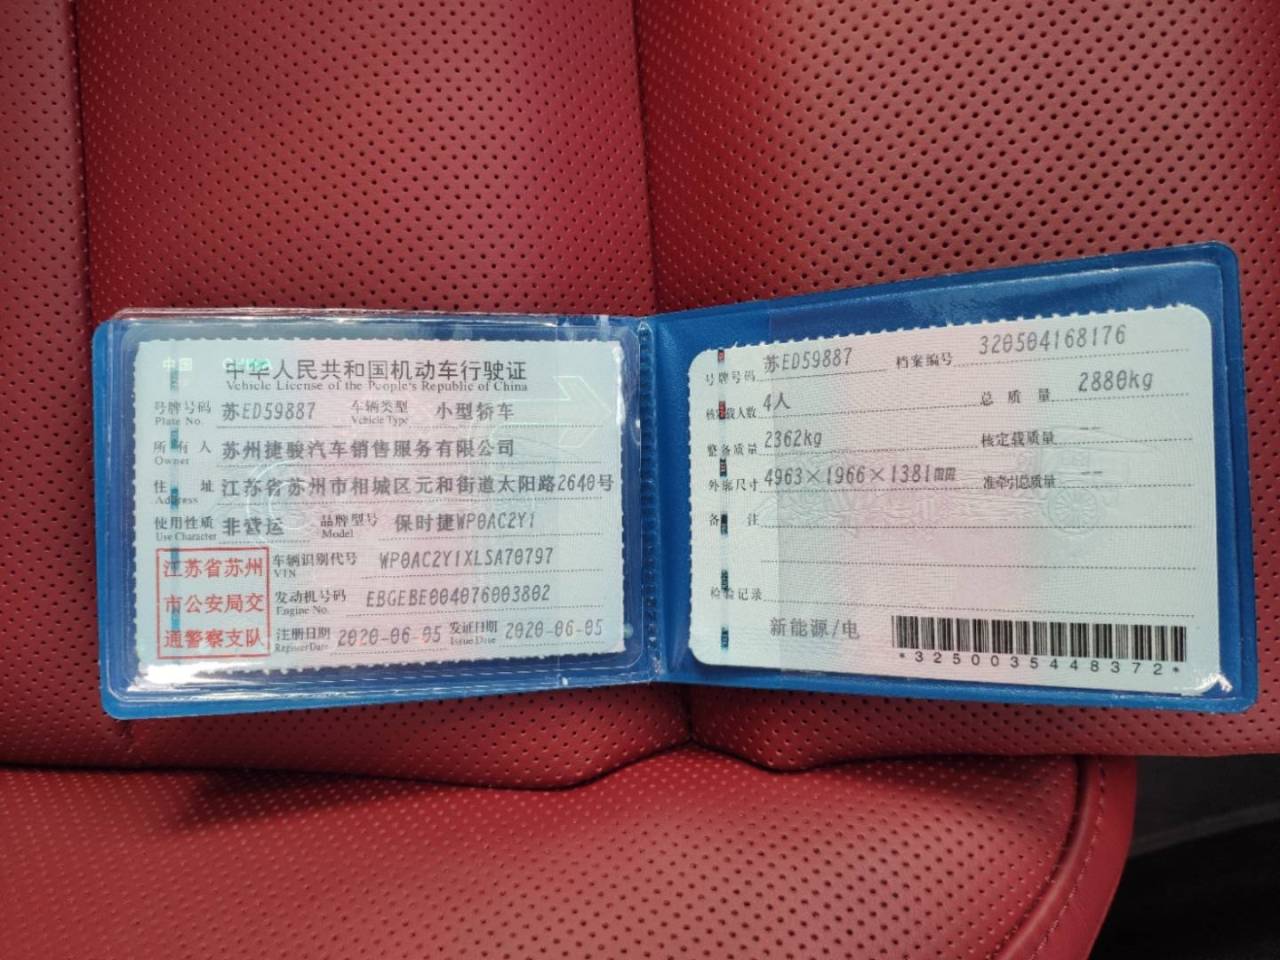 中国 CHINA
中华人民共和国机动车行驶证
Vehicle License of the People's Republic of China
号牌号码 苏ED59887 车辆类型 小型轿车
Plate No. Vehicle Type
所有人 苏州捷骏汽车销售服务有限公司
Owner
住址 江苏省苏州市相城区元和街道太阳路2640号
Address
使用性质 非营运 品牌型号 保时捷WP0AC2Y1
Use Character Model
江苏省苏州
市公安局交
通警察支队
车辆识别代号 WP0AC2Y1XLSA70797
VIN
发动机号码 EBGEBE004076003802
Engine No.
注册日期 2020-06-05 发证日期 2020-06-05
Register Date Issue Date
号牌号码 苏ED59887 档案编号 320504168176
核定载人数 4人 总质量 2880kg
整备质量 2362kg 核定载质量 --
外廓尺寸 4963×1966×1381mm 准牵引总质量 --
备注
检验记录
新能源/电
*3250035448372*